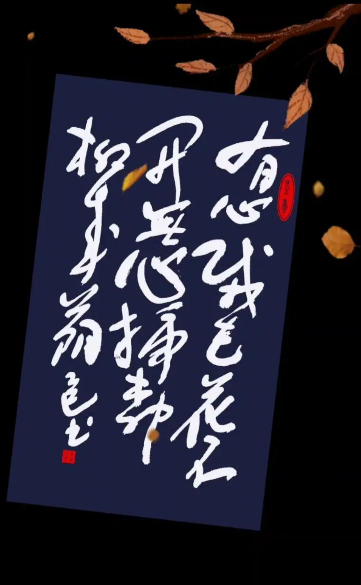 有心栽花花不
开無心插柳
柳成荫 书